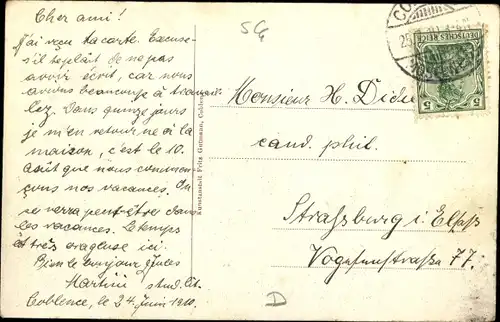 Cher ami!
J'ai reçu ta carte. Excuse-
s'il te plait de ne pas
avoir écrit, car nous
avons beaucoup à travail
lez. Dans quinze jours
je m'en retourne à la
maison, c'est le 10.
Août que nous commen
çons nos vacances. On
se verra peut-être dans
les vacances. Le temps
est très orageuse ici.
Bien le bonjour
Martini stud. lit.
Coblence, le 24 Juin 1910.
Kunstanstalt Fritz Gutmann, Coblenz
54
DEUTSCHES REICH
5 5
25
Monsieur H. Didie
cand. phil.
Straßburg i. Elsaß
Vogesenstraße 77.
D